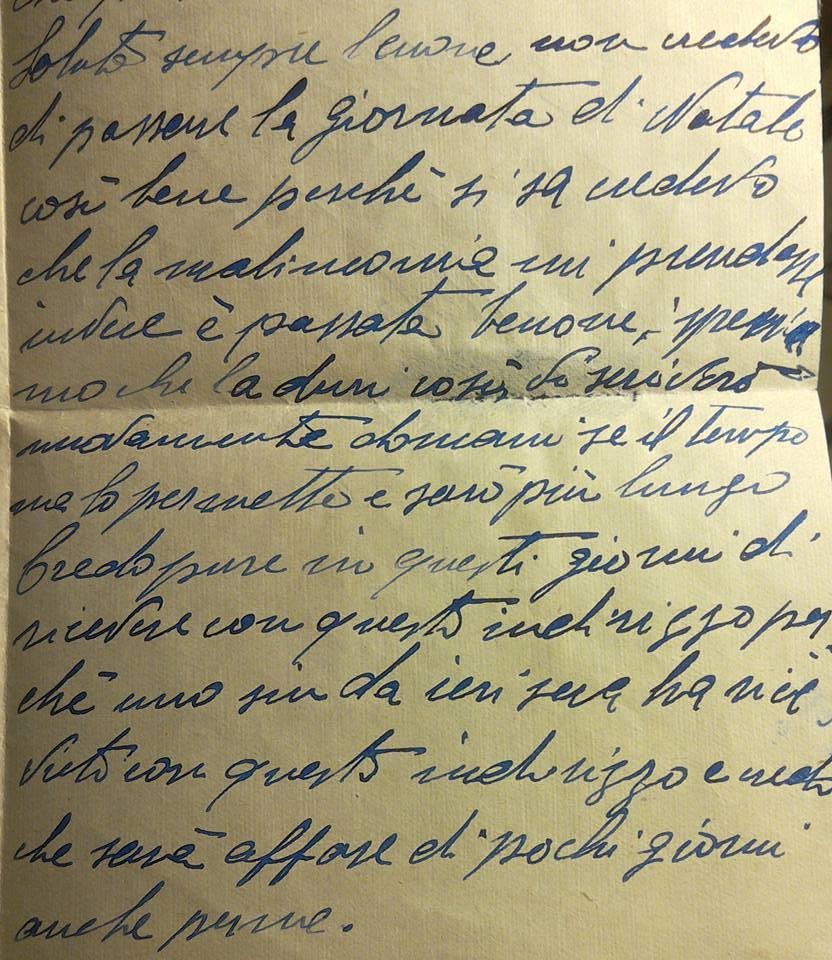 Salute sempre benone, non credevo
di passare la giornata di Natale
così bene perchè si sa credevo
che la malinconia mi prendesse
invece è passata benone, speria
mo che la duri così vi scriverò
nuovamente domani se il tempo
me lo permette e sarò più lungo
Credo pure in questi giorni di
ricevere con questo indirizzo per
chè uno sin da ieri sera ha rice
vuto con questo indirizzo e credo
che sarà affare di pochi giorni
anche per me.